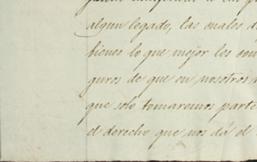 algun legado, las cuales d
bienes lo que mejor les con
guros de que en nosotros n
que solo tomaremos parte
el derecho que nos dá el